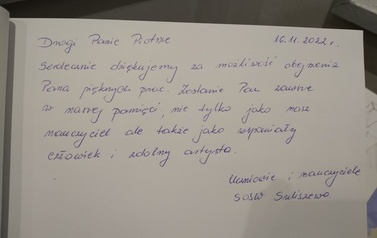 Drogi Panie Piotrze 16.11.2022 r.
Serdecznie dziękujemy za możliwość obejrzenia
Pana pięknych prac. Zostanie Pan zawsze
w naszej pamięci, nie tylko jako nasz
nauczyciel ale także jako wspaniały
człowiek i zdolny artysta.
Uczniowie i nauczyciele
SOSW